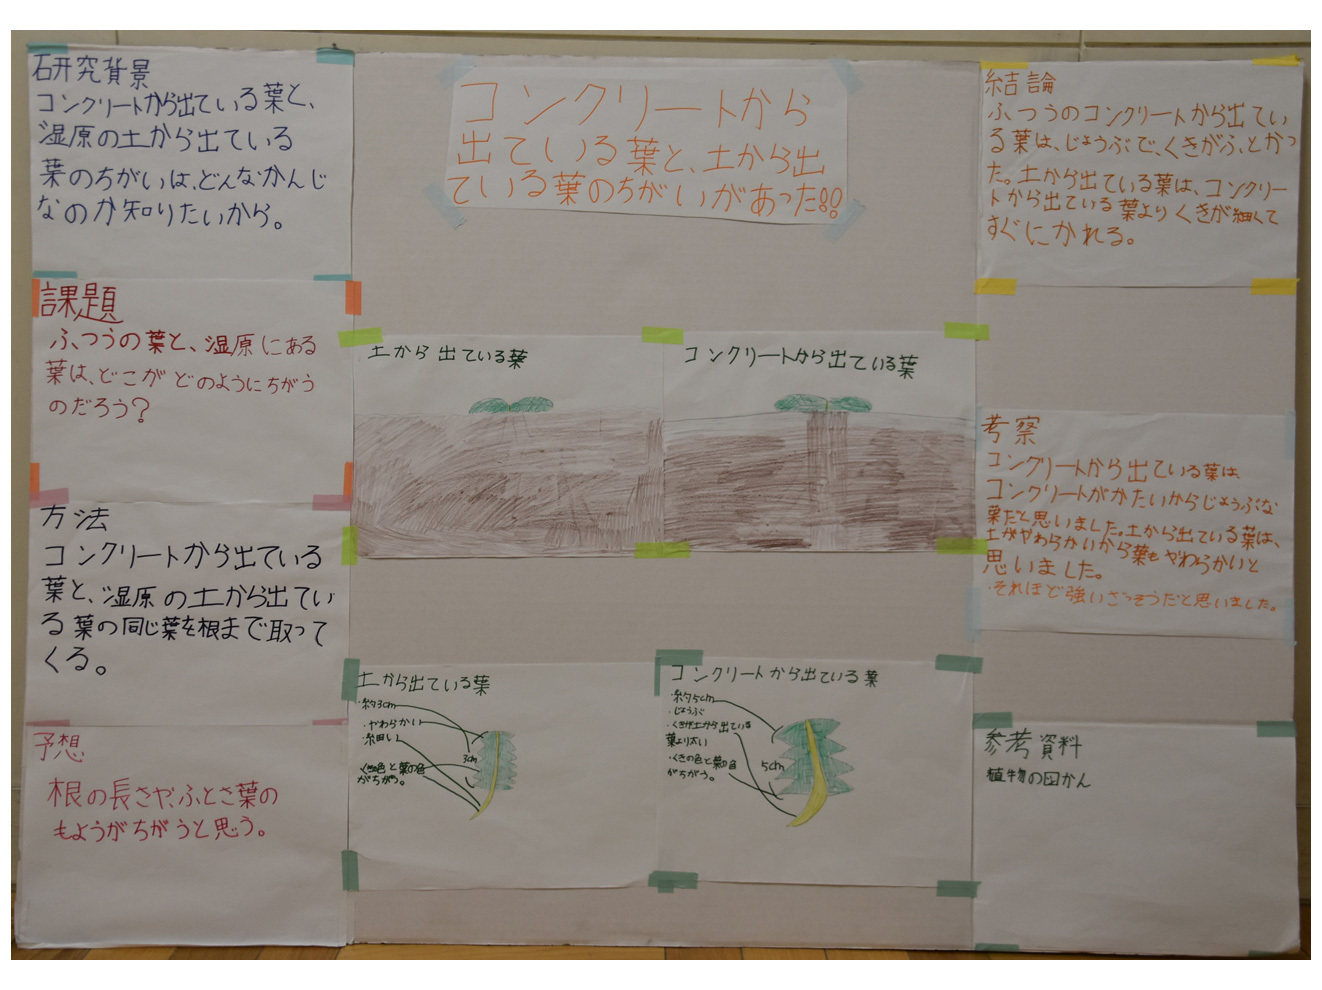 コンクリートから
出ている葉と、土から出
ている葉のちがいがあった!!
研究背景
コンクリートから出ている葉と、
湿原の土から出ている
葉のちがいは、どんなかんじ
なのか知りたいから。
課題
ふつうの葉と、湿原にある
葉は、どこがどのようにちがう
のだろう?
方法
コンクリートから出ている
葉と、湿原の土から出てい
る葉の同じ葉を根まで取って
くる。
予想
根の長さや、ふとさ葉の
もようがちがうと思う。
土から出ている葉
コンクリートから出ている葉
土から出ている葉
・約3cm
・やわらかい
・細い
・くきの色と葉の色
がちがう。
3cm
コンクリートから出ている葉
・約5cm
・じょうぶ
・くきが土から出ている
葉より太い
・くきの色と葉の色
がちがう。
5cm
結論
ふつうのコンクリートから出てい
る葉は、じょうぶで、くきがふとかっ
た。土から出ている葉は、コンクリー
トから出ている葉よりくきが細くて
すぐにかれる。
考察
コンクリートから出ている葉は、
コンクリートがかたいからじょうぶな
葉だと思いました。土から出ている葉は、
土がやわらかいから葉もやわらかいと
思いました。
・それほど強いざっそうだと思いました。
参考資料
植物の図かん